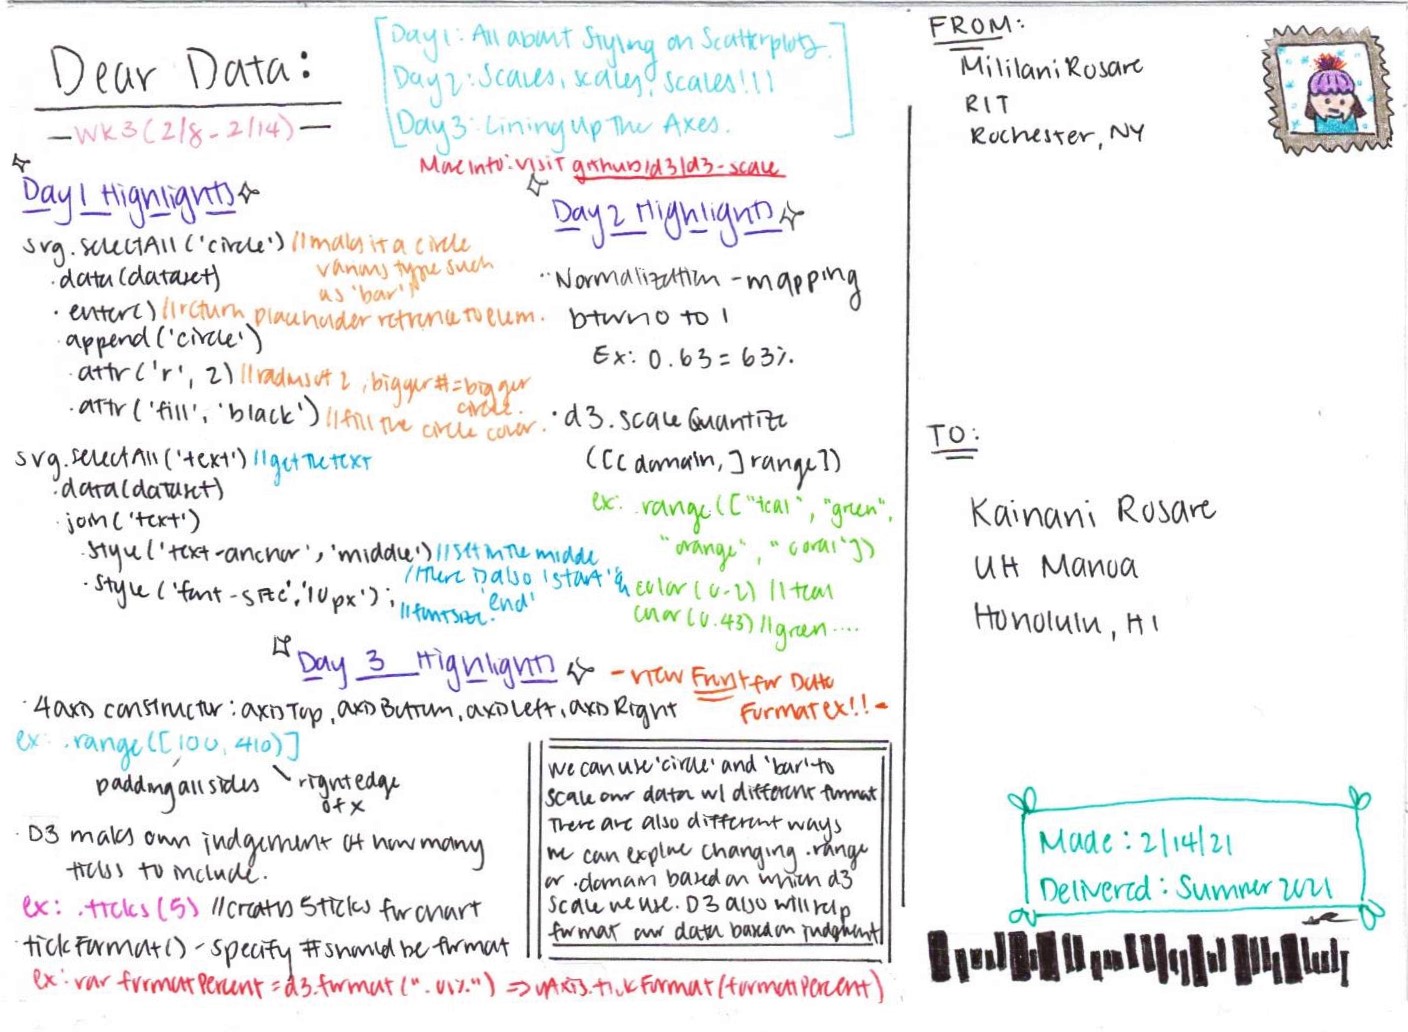 Dear Data:
— WK3 (2/8 - 2/14) —
[Day 1: All about Styling on Scatterplots.
Day 2: Scales, scales, scales!!!
Day 3: Lining Up The Axes.]
More Info: visit github/d3/d3-scale
Day 1 Highlights
svg.selectAll('circle') //makes it a circle
various type such
as 'bar'
.data(dataset)
.enter() //return placeholder reference to elem.
.append('circle')
.attr('r', 2) //radius of 2, bigger # = bigger
circle.
.attr('fill', 'black') //fill the circle color.
svg.selectAll('text') //get the text
.data(dataset)
.join('text')
.style('text-anchor', 'middle') //set in the middle
//there is also 'start' &
'end'
.style('font-size', '10px'); //font size.
Day 2 Highlights
Normalization - mapping
btwn 0 to 1
Ex: 0.63 = 63%
· d3.scaleQuantize
([[domain,] range])
ex: .range(["teal", "green",
"orange", "coral"])
color(0.2) //teal
color(0.43) //green ....
Day 3 Highlights
- view Front for Data
Format ex!! -
· 4 axis constructor: axisTop, axisBottom, axisLeft, axisRight
ex: .range([100, 410)]
padding all sides
right edge
of x
· D3 makes own judgement of how many
ticks to include.
ex: .ticks(5) //creates 5 ticks for chart
· tickFormat() - specify # should be format
ex: var formatPercent = d3.format(".0%") => yAxis.tickFormat(formatPercent)
We can use 'circle' and 'bar' to
scale our data w/ different format
There are also different ways
we can explore changing .range
or .domain based on which d3
scale we use. D3 also will help
format our data based on judgment
FROM:
Mililani Rosare
RIT
Rochester, NY
TO:
Kainani Rosare
UH Manoa
Honolulu, HI
Made: 2/14/21
Delivered: Summer 2021